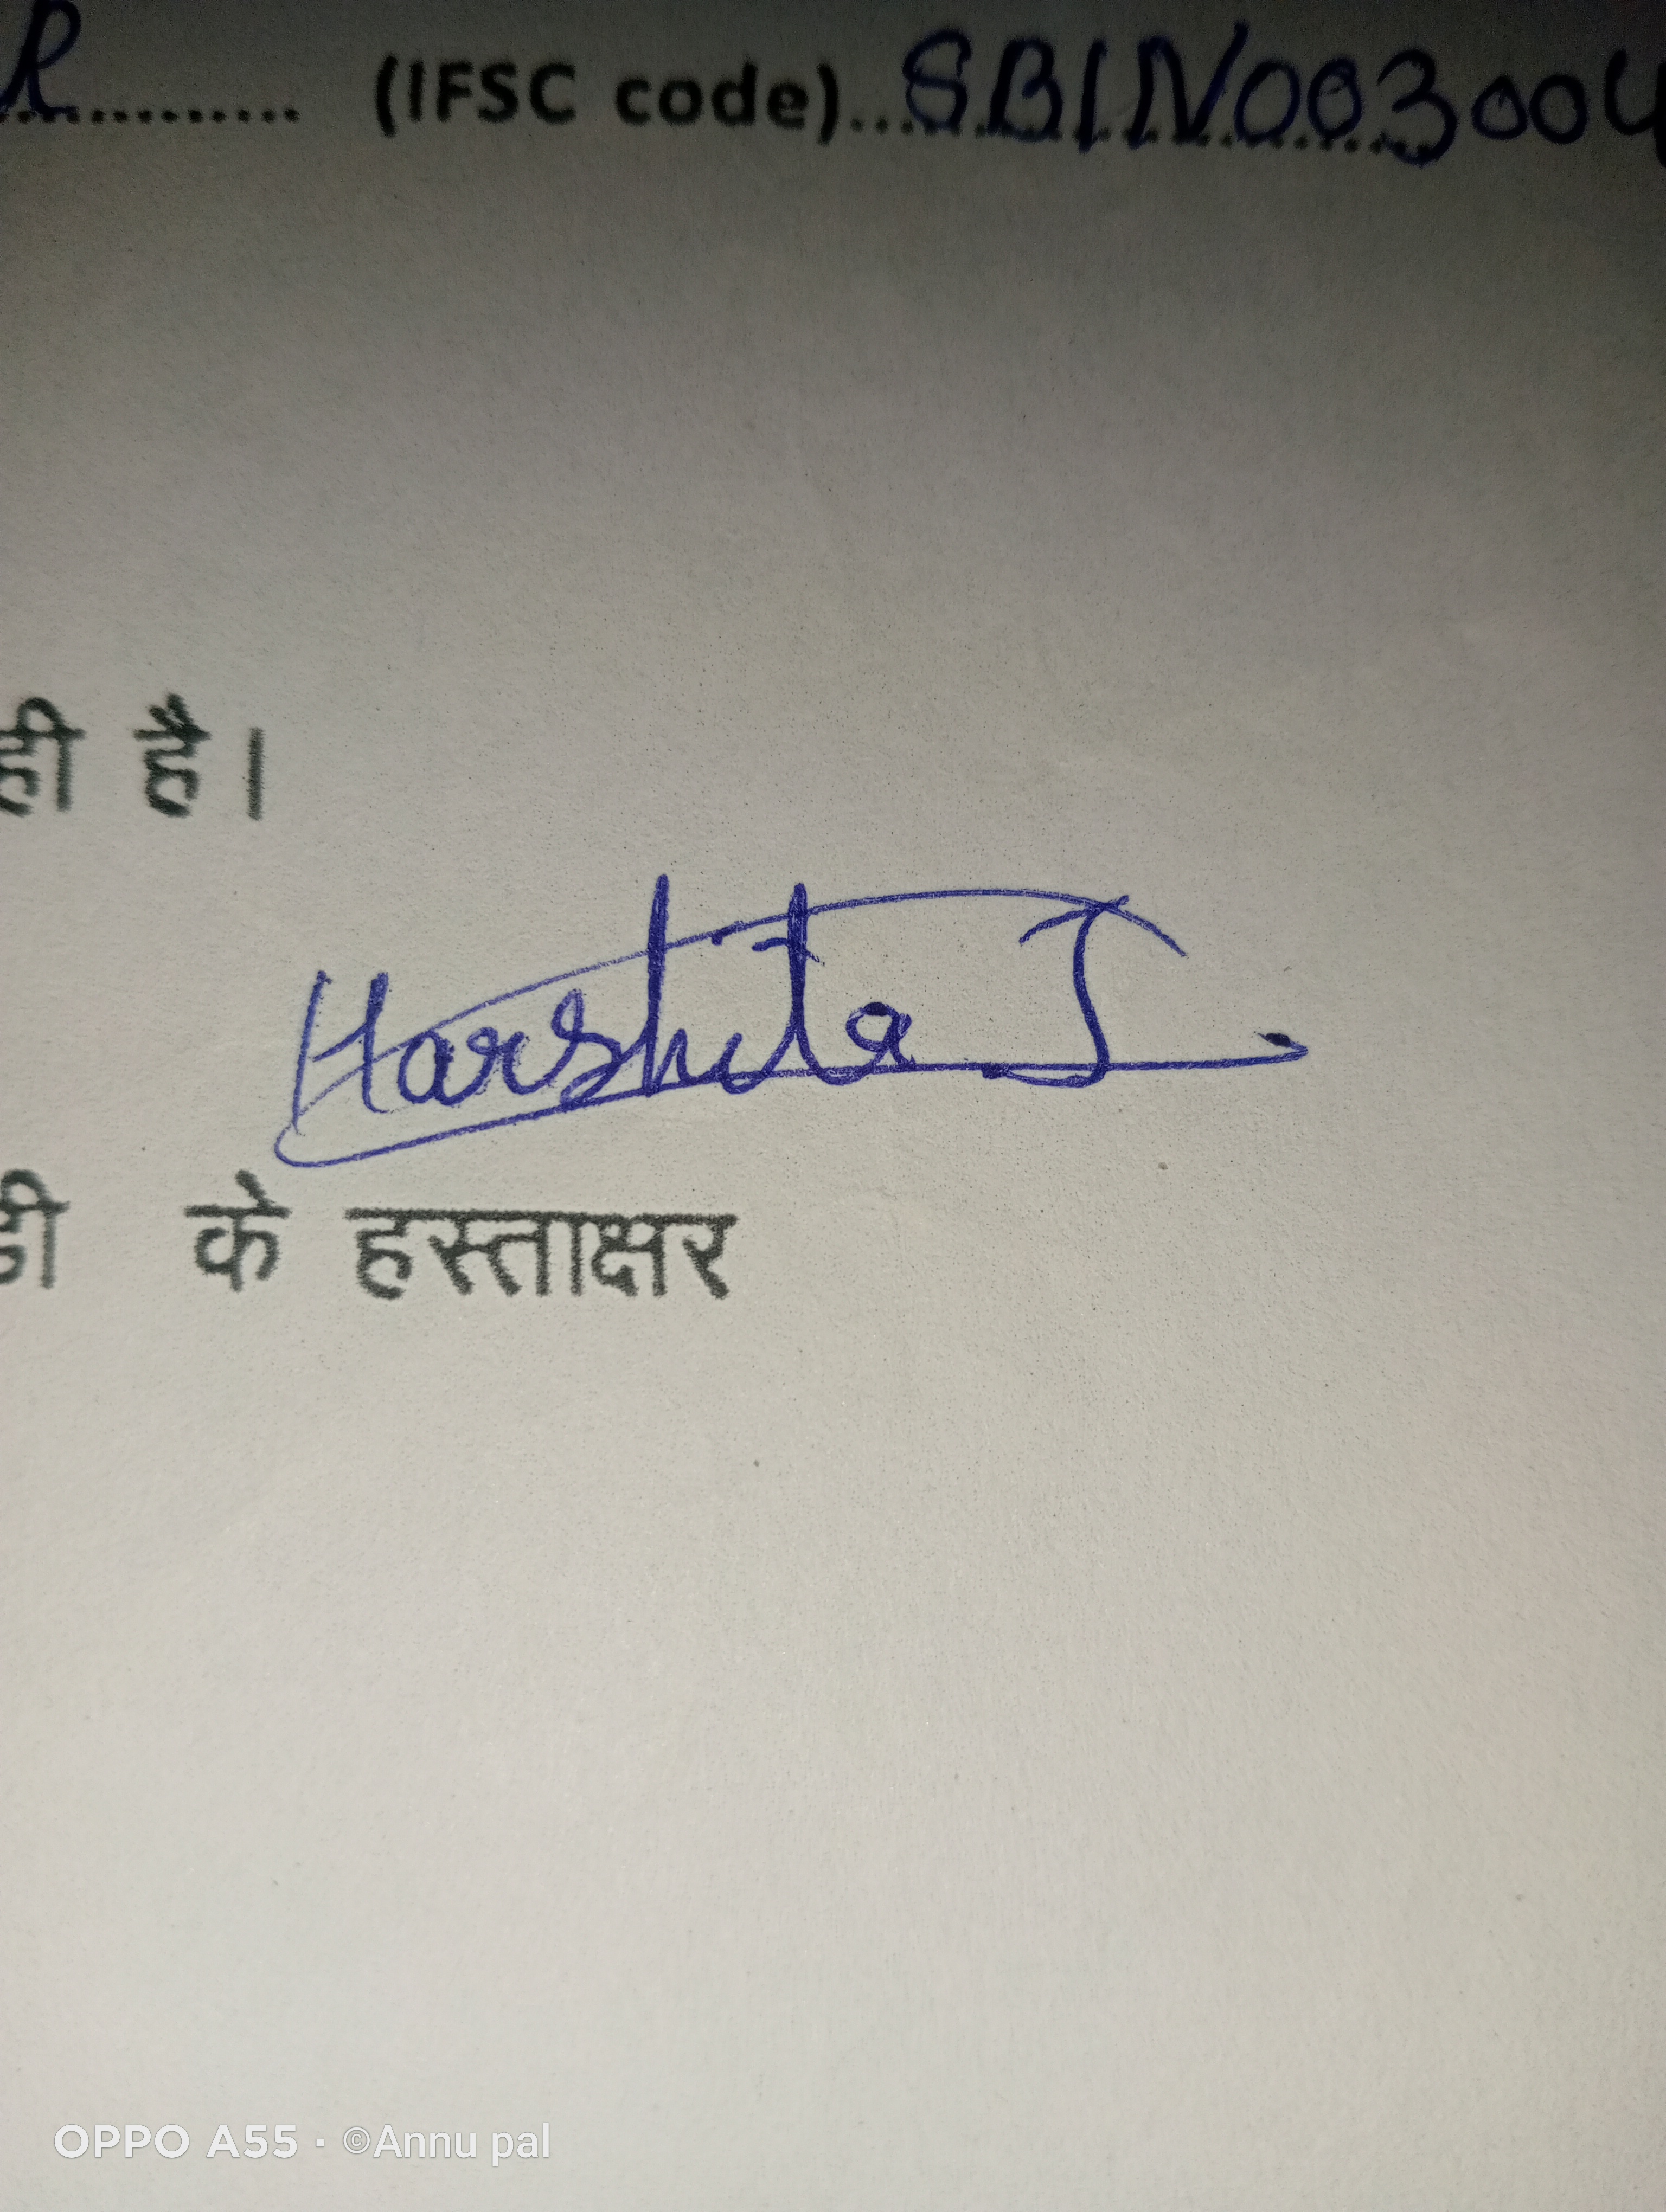 (IFSC code) SBIN003004
ही है।
Harshita J
के हस्ताक्षर
OPPO A55 · ©Annu pal